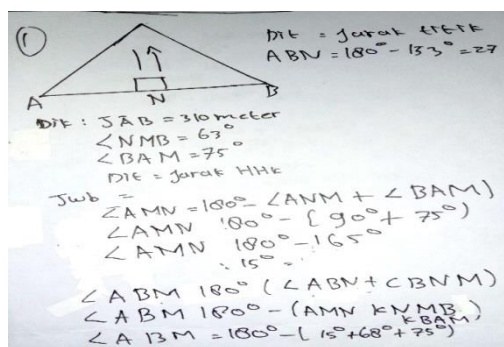 ①
Dit = Jarak titik
ABN = 180° - 153° = 27
A N B
Dik : JAB = 310 meter
∠NMB = 63°
∠BAM = 75°
Dit = Jarak
Jwb =
∠AMN = 180° - ∠ANM + ∠BAM)
∠AMN 180° - (90° + 75°)
∠AMN 180° - 165°
: 15° =
∠ABM 180° (∠ABN + CBNM)
∠ABM 180° - (AMN KNMB)
KBAM
∠ABM = 180° - (15° + 68° + 75°)